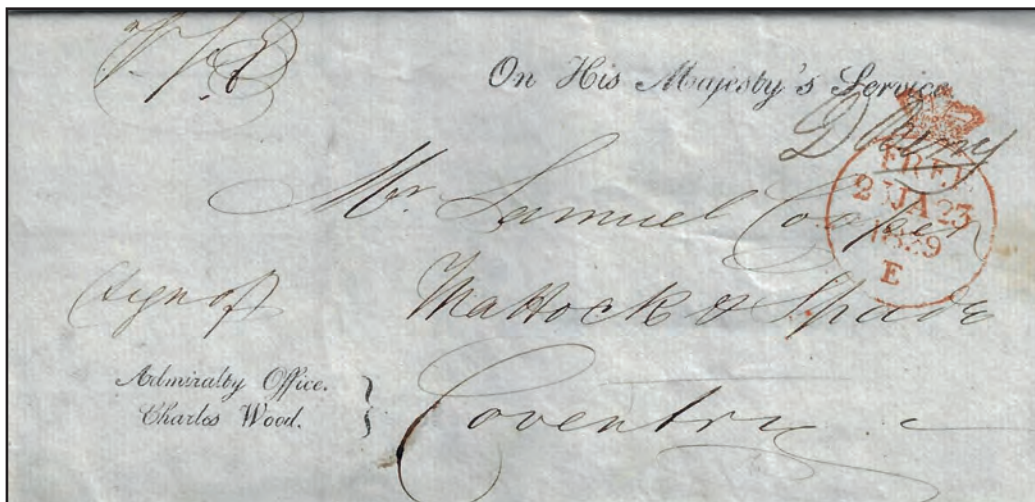 On His Majesty's Service.
FREE
JA 23
E
Mr. Samuel Cooper
Sign of Mattock & Spade
Admiralty Office.
Charles Wood.
Coventry